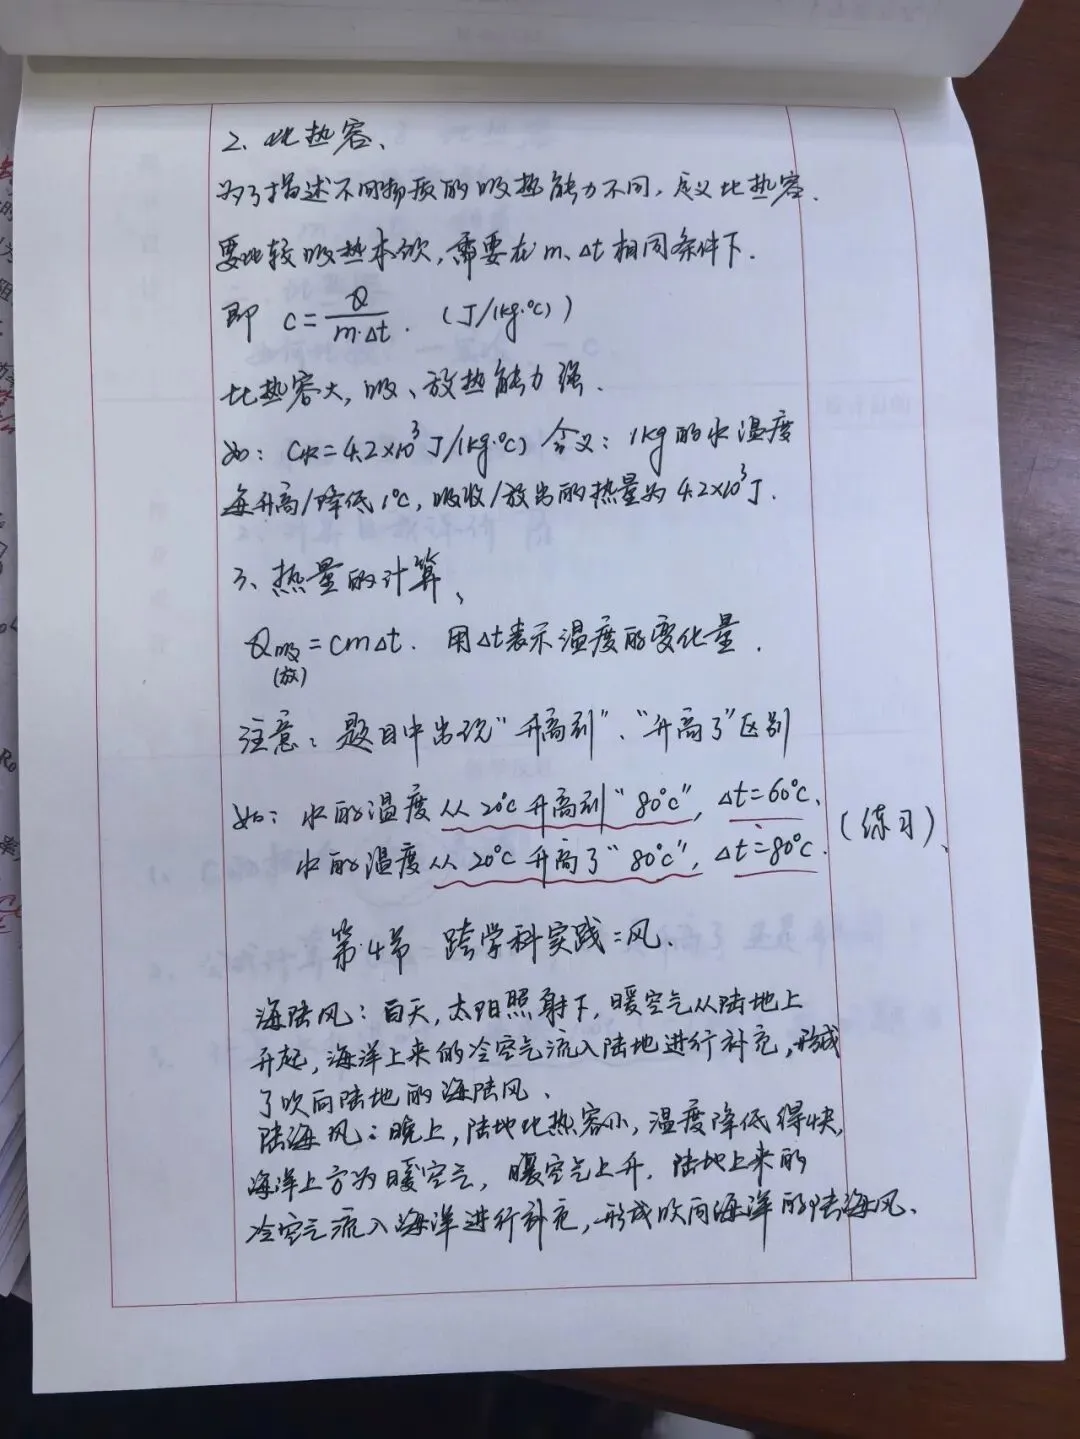 2、比热容、
为了描述不同物质的吸热能力不同，定义比热容.
要比较吸热本领，需要在m、Δt相同条件下.
即 c=Q/(m·Δt). (J/(kg·℃))
比热容大，吸、放热能力强.
如：C水=4.2×10³J/(kg·℃) 含义：1kg的水温度
每升高/降低1℃，吸收/放出的热量为4.2×10³J.
3、热量的计算、
Q吸(放)=cmΔt. 用Δt表示温度的变化量.
注意：题目中出现"升高到"、"升高了"区别
如：水的温度从20℃升高到"80℃"，Δt=60℃、
水的温度从20℃升高了"80℃"，Δt=80℃.
(练习)、
第4节 跨学科实践：风.
海陆风：白天，太阳照射下，暖空气从陆地上
升起，海洋上来的冷空气流入陆地进行补充，形成
了吹向陆地的海陆风、
陆海风：晚上，陆地比热容小，温度降低得快，
海洋上方为暖空气，暖空气上升.陆地上来的
冷空气流入海洋进行补充，形成吹向海洋的陆海风、